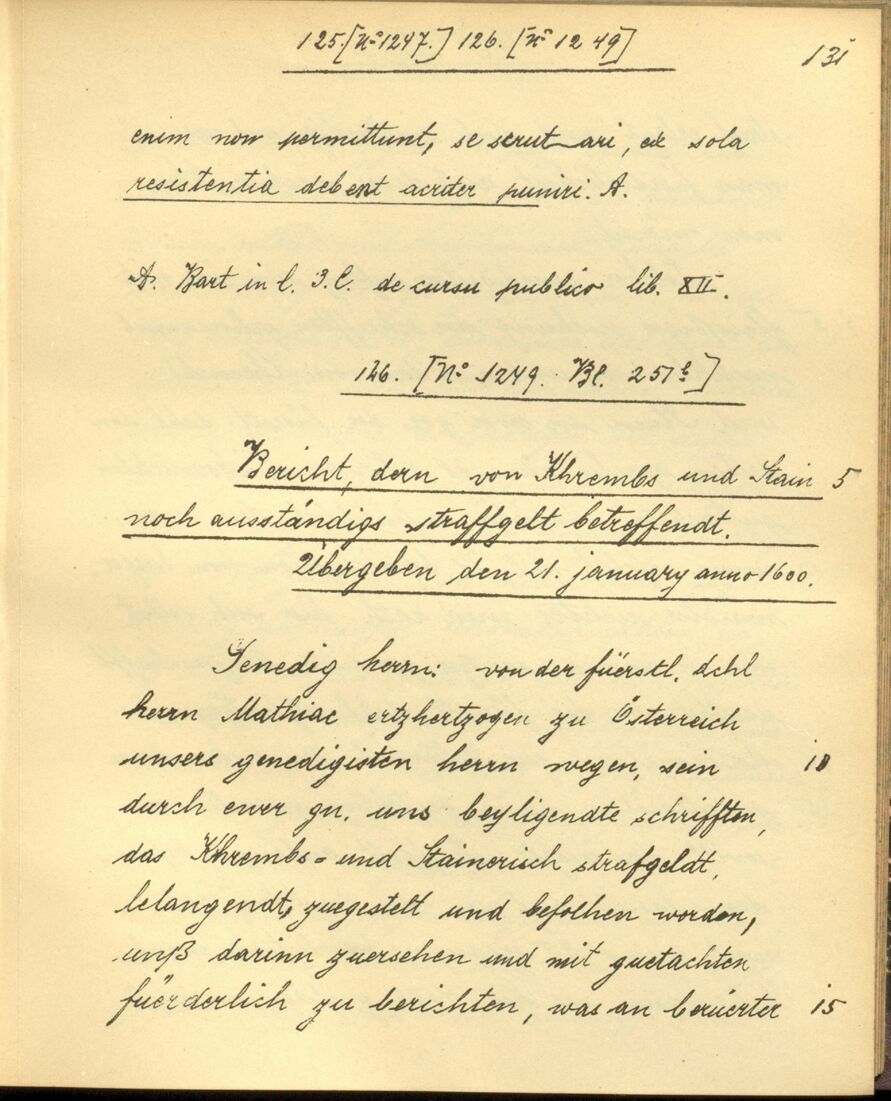 125. [No 1247.] 126. [No 1249] 131
enim non permittunt, se scrutari, ex sola
resistentia debent acriter puniri. A.
A. Bart in l. 3. C. de cursu publico lib. XII.
126. [No 1249. Bl. 251b]
Bericht, dern von Khrembs und Stain 5
noch ausständigs straffgelt betreffendt.
Übergeben den 21. january anno 1600.
Genedig herrn: von der füerstl. dchl
herrn Mathiae ertzhertzogen zu Österreich
unsers genedigisten herrn wegen, sein 10
durch ewer gn. uns beyligendte schrifften,
das Khrembs- und Stainerisch strafgeldt,
belangendt, zuegestelt und befolhen worden,
unß darinn zuersehen und mit guetachten
füerderlich zu berichten, was an berüerter 15